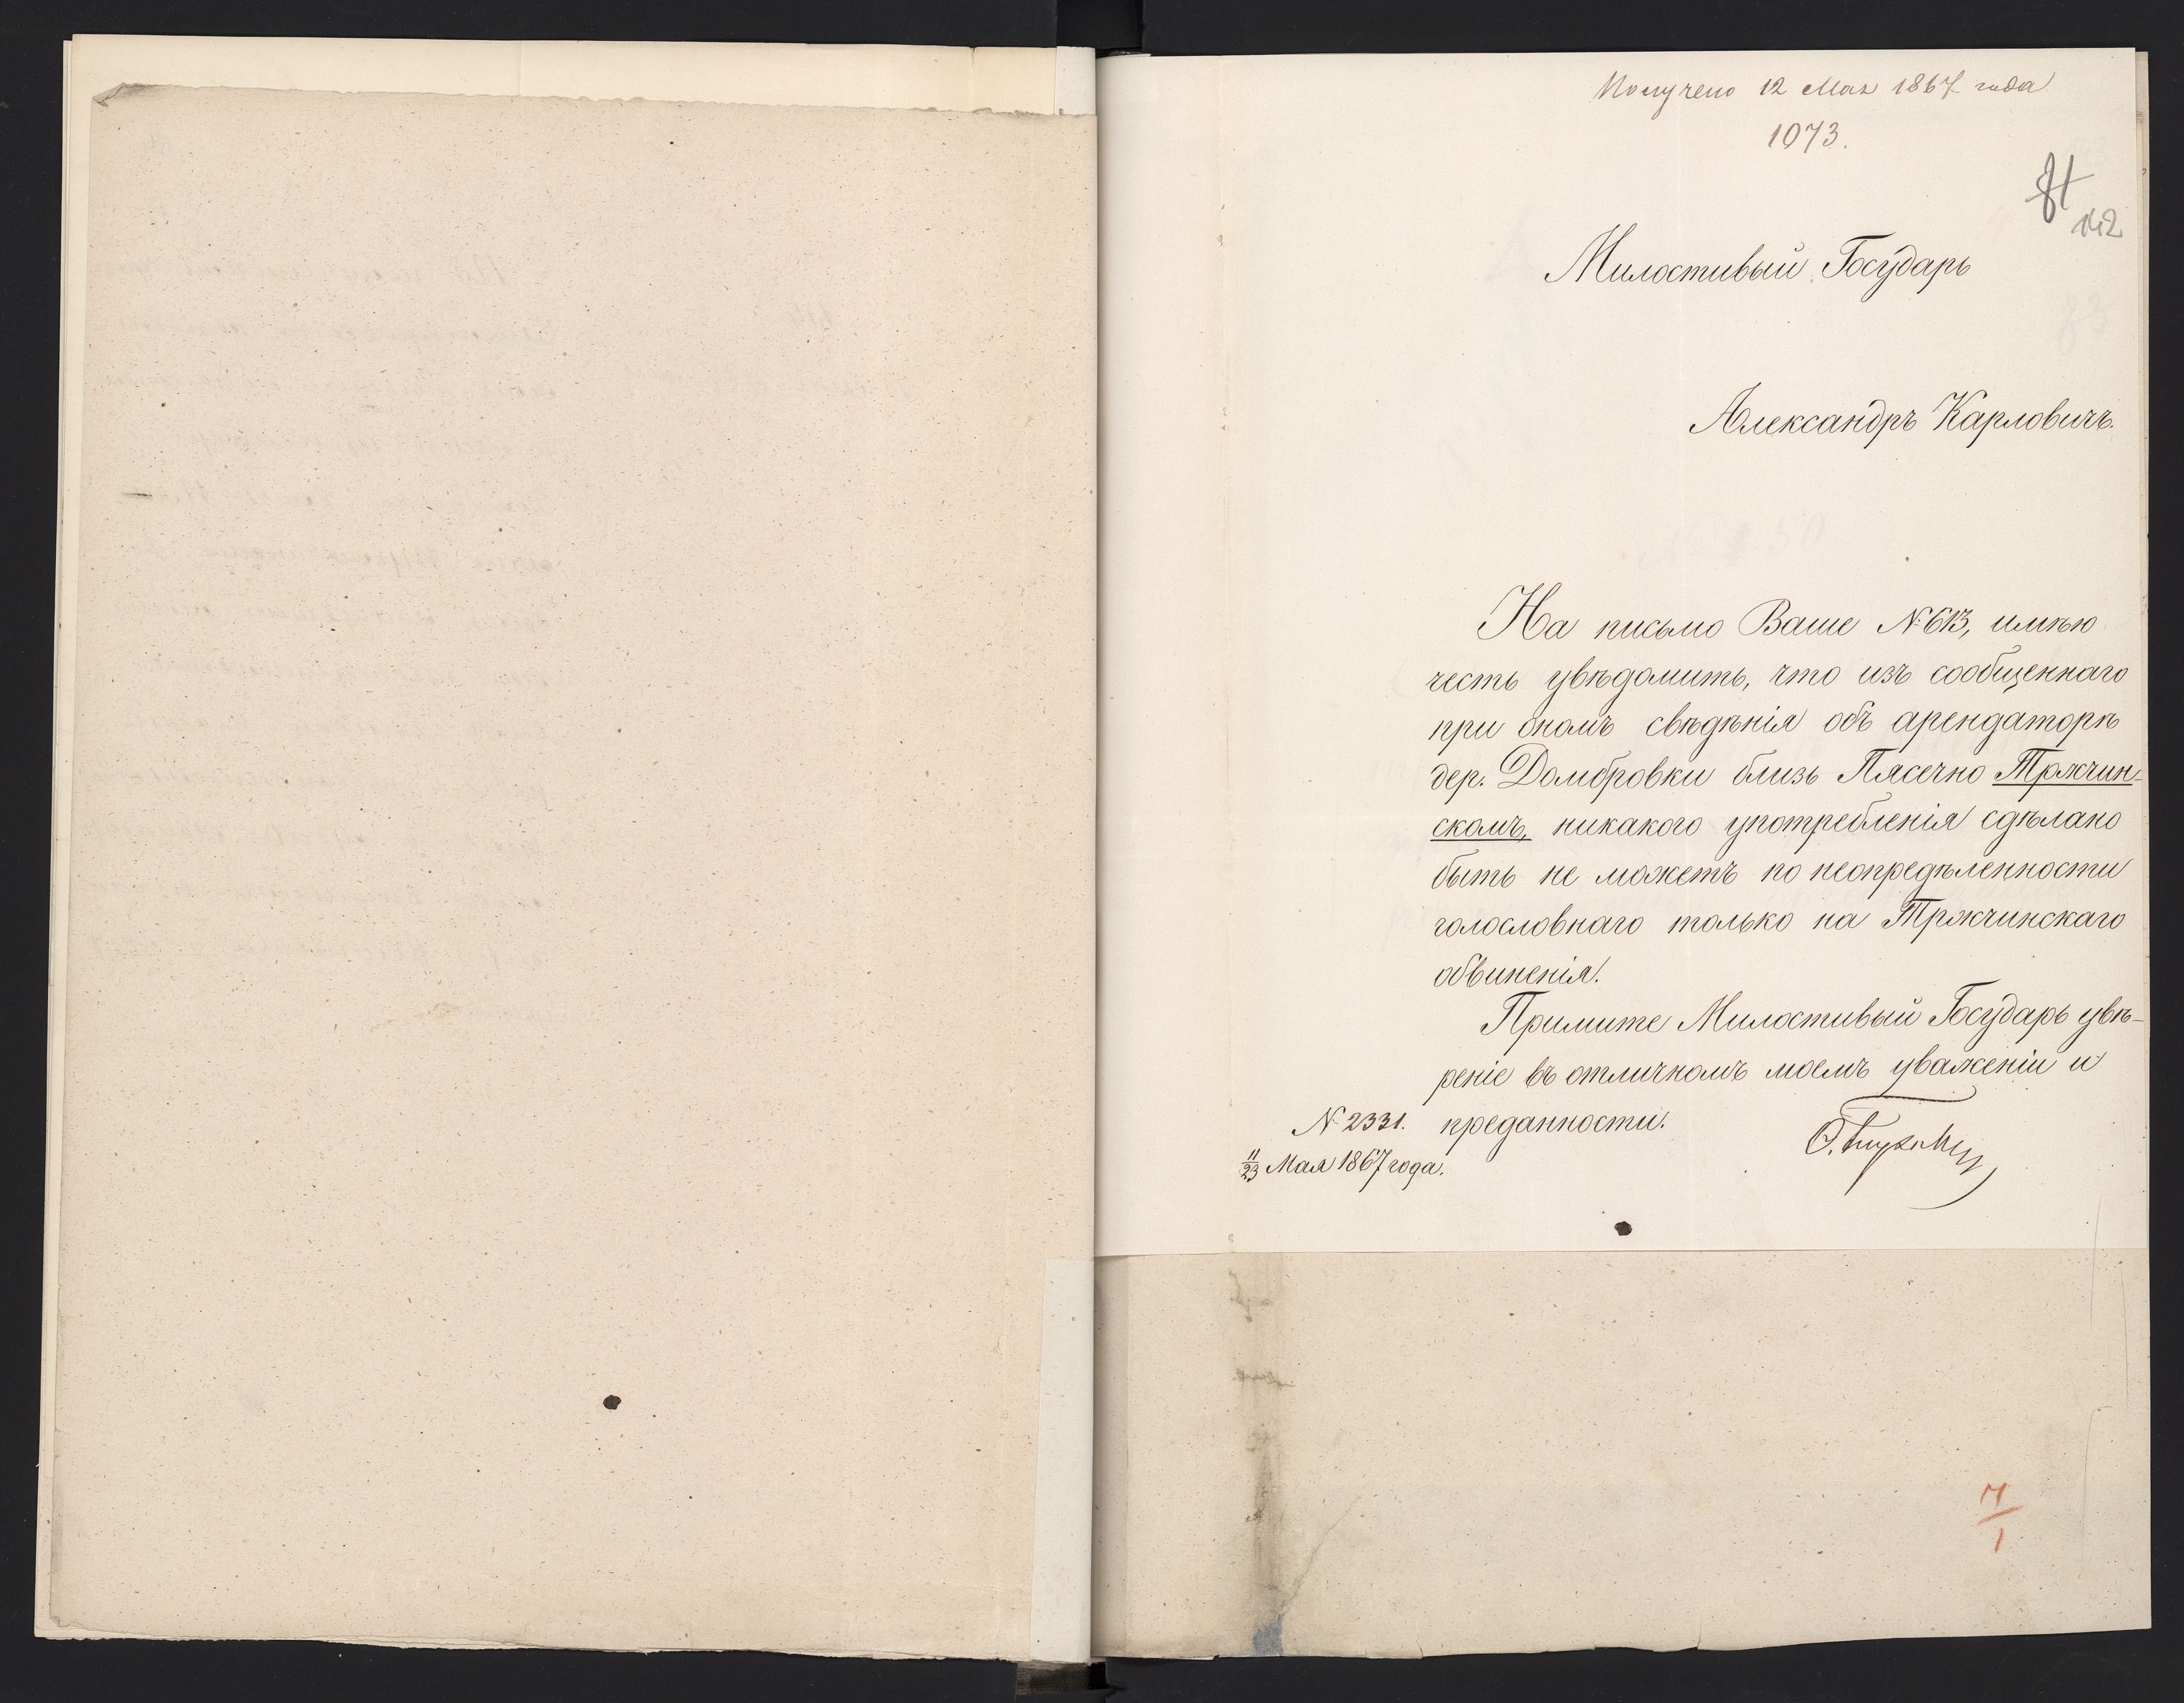 Получено 12 Мая 1867 года
1073.
142
Милостивый Государь
Александръ Карловичъ.
На письмо Ваше №613, имѣю
честь увѣдомить, что изъ сообщеннаго
при ономъ свѣдѣнія объ арендаторѣ
дер. Домбровки близь Пясечно Тржчин-
скомъ, никакого употребленія сдѣлано
быть не можетъ по неопредѣленности
голословнаго только на Тржчинскаго
обвиненія.
Примите Милостивый Государь увѣ-
реніе въ отличномъ моемъ уваженіи и
преданности.
№ 2331.
11/23 Мая 1867 года.